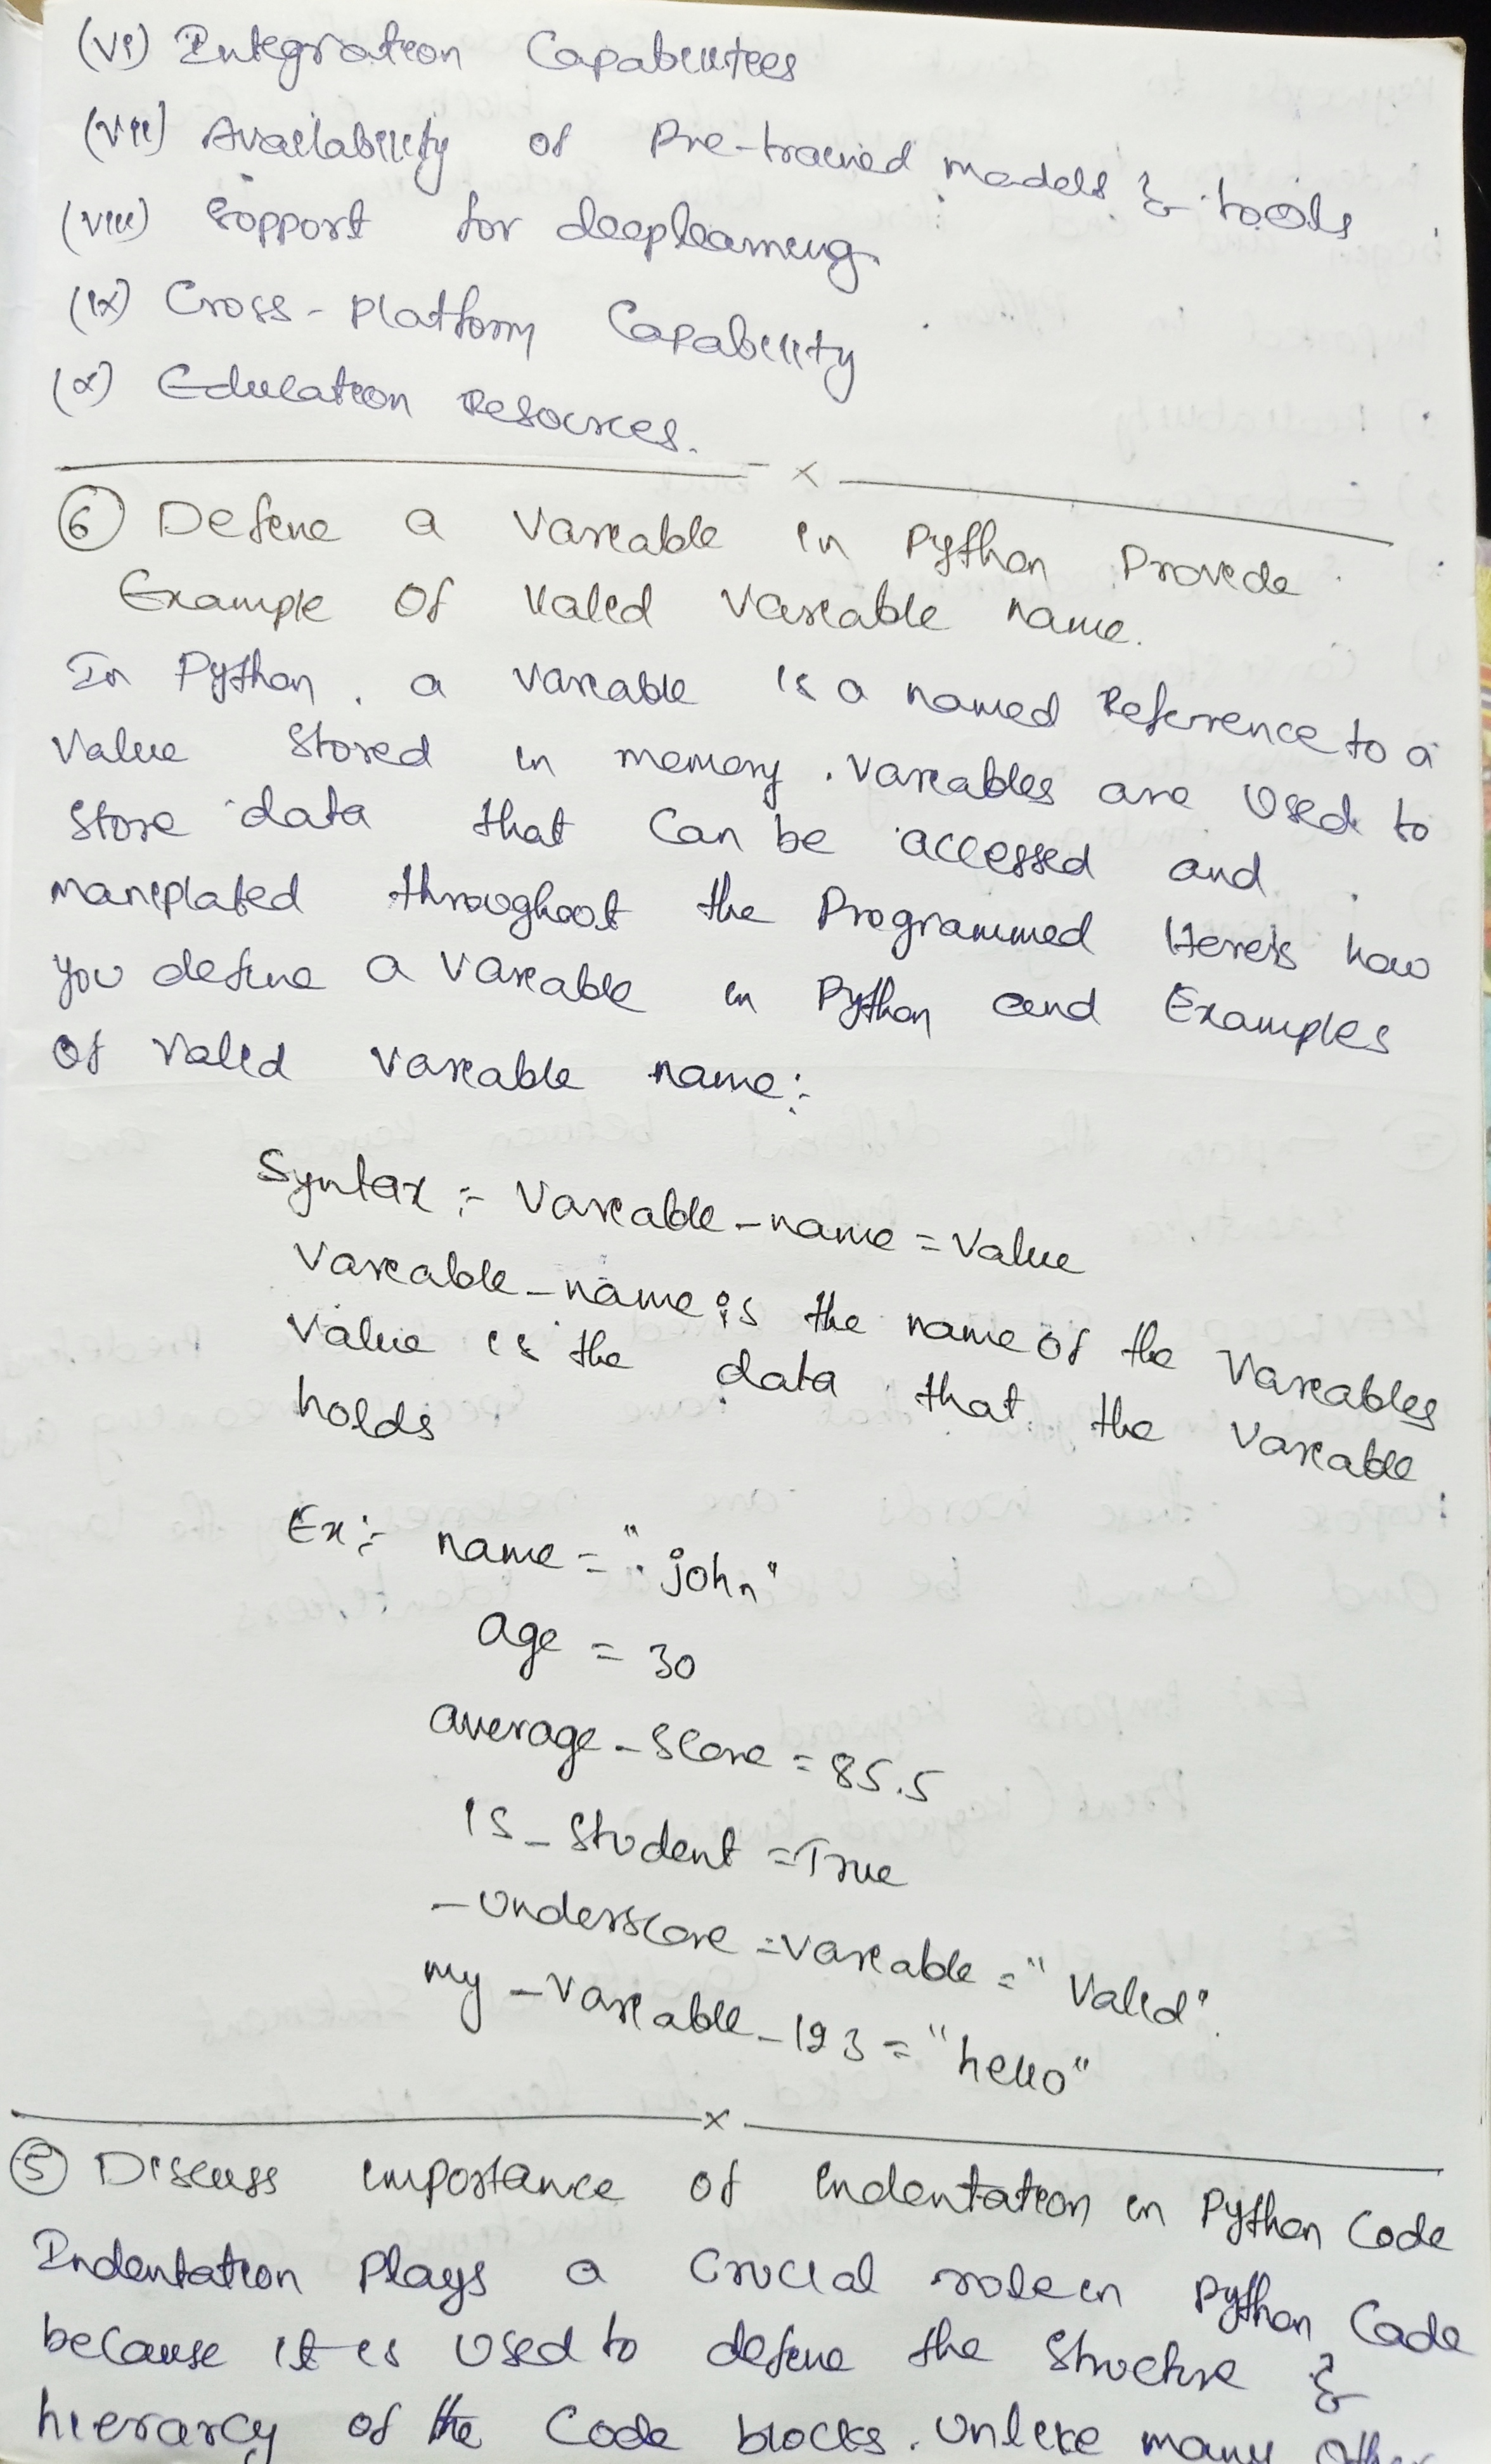 (vi) Integration Capabilitees
(vii) Availability of Pre-trained models & tools
(viii) Sopport for deeplearning.
(ix) Cross-Platform Capability
(x) Education Resources.
x
6 Define a Variable in Python Provide
Example Of Valid Variable name.
In Python, a variable is a named Reference to a
Value Stored in memory. Variables are Used to
Store data that Can be accessed and
maniplated throughoot the Programmed Here's how
you define a Variable in Python and Examples
Of Valid Variable name:-
Syntax :- Variable_name = Value
Variable_name is the name of the Variables
Value is the data that the Variable
holds
Ex:- name = "john"
age = 30
average_Score = 85.5
is_Student = True
_Underscore = variable = "Valid".
my_Variable_123 = "hello"
x
5 Discuss importance of indentation in Python Code
Indentation Plays a Crucial role in Python Code
because it is Used to define the Structure &
hierarcy of the Code blocks. Unlike many Other